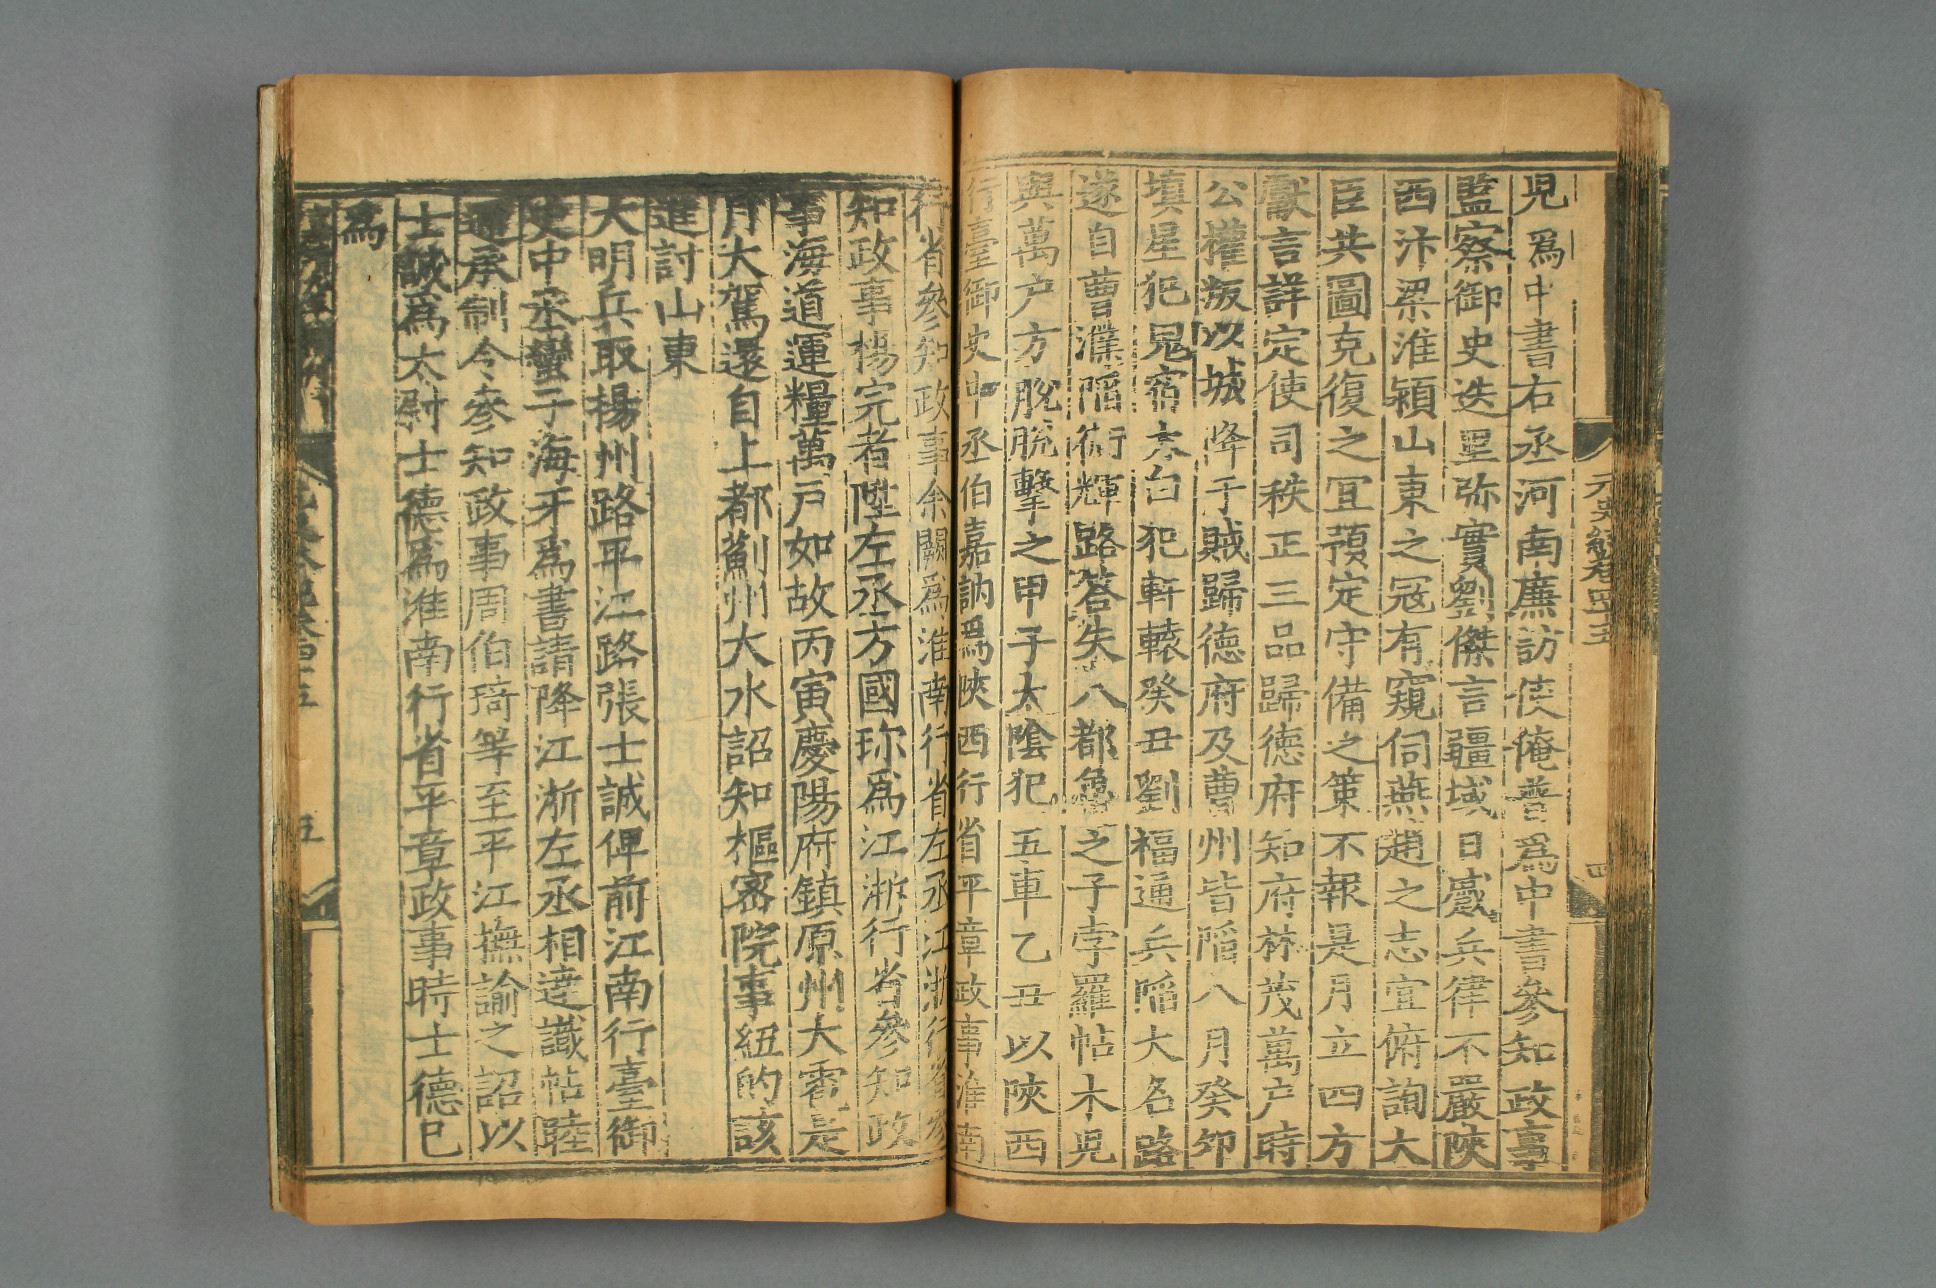 兒爲中書右丞河南廉訪使俺普爲中書參知政事
監察御史迭里弥實劉傑言疆域日蹙兵律不嚴陝
西汴梁淮潁山東之冦有窺伺燕趙之志宜俯詢大
臣共圖克復之冝預定守備之策不報是月立四方
獻言詳定使司秩正三品歸德府知府林茂萬户時
公權叛以城降于賊歸德府及曹州皆陷八月癸卯
填星犯鬼宿太白犯軒轅癸丑劉福通兵陷大名路
遂自曹濮陷衛輝路荅失八都魯之子孛羅帖木兒
與萬户方脫脫擊之甲子太隂犯五車乙丑以陝西
行臺御史中丞伯嘉訥爲陝西行省平章政事淮南
行省參知政事余闕爲淮南行省左丞江浙行省參
知政事楊完者陞左丞方國珍爲江浙行省參知政
事海道運糧萬戸如故丙寅慶陽府鎮原州大雹是
月大駕還自上都薊州大水詔知樞密院事紐的該
進討山東
大明兵取揚州路平江路張士誠俾前江南行臺御
史中丞蠻子海牙爲書請降江浙左丞相達識帖睦
邇承制令參知政事周伯琦等至平江撫諭之詔以
士誠爲太尉士德爲淮南行省平章政事時士德已
爲
元史本紀卷四十五
五